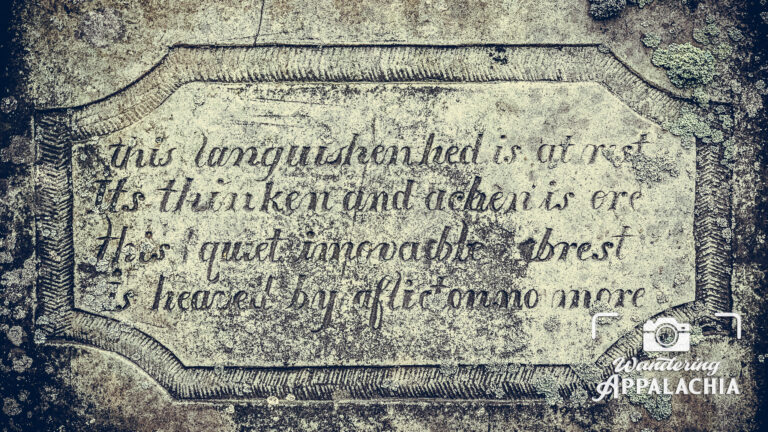 this languishen hed is at rest
Its thinken and achen is ore
this quiet imovaeble brest
is heaved by aflicton no more
Wandering
APPALACHIA